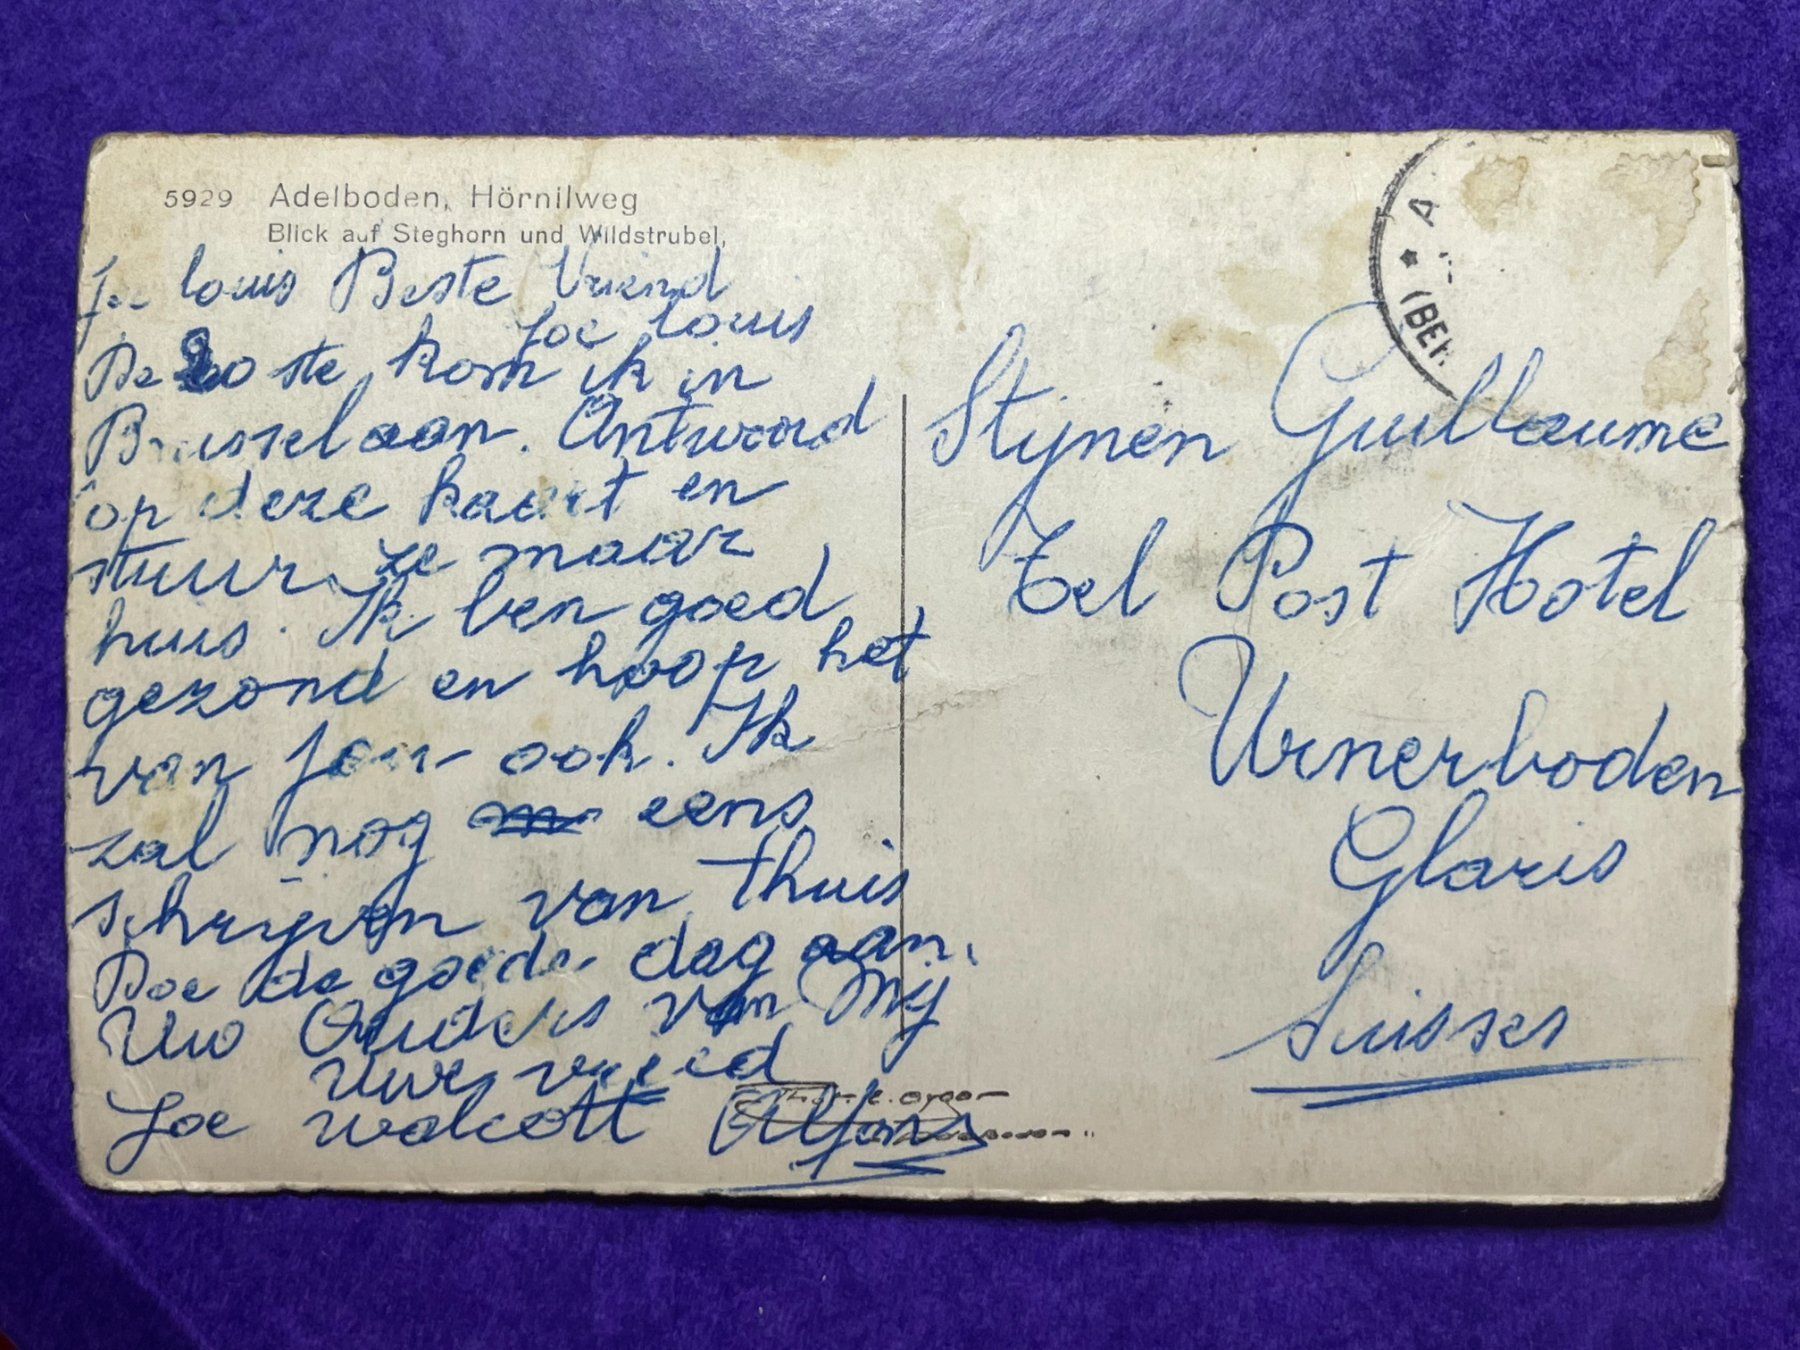 5929 Adelboden, Hörnliweg
Blick auf Steghorn und Wildstrubel,
Joe louis Beste Vriend
Joe louis
De 20 ste kom ik in
Brussel aan. Antwoord
op deze kaart en
stuur ze maar
huis. Ik ben goed
gezond en hoop het
van jou ook. Ik
zal nog eens
schrijven van thuis
Doe de goede dag aan
Uw Ouders van Mij
Uwe vried
Joe walcott Alfons
Stijnen Guillaume
Tel Post Hotel
Urnerboden
Glaris
Suisses
A
(BER